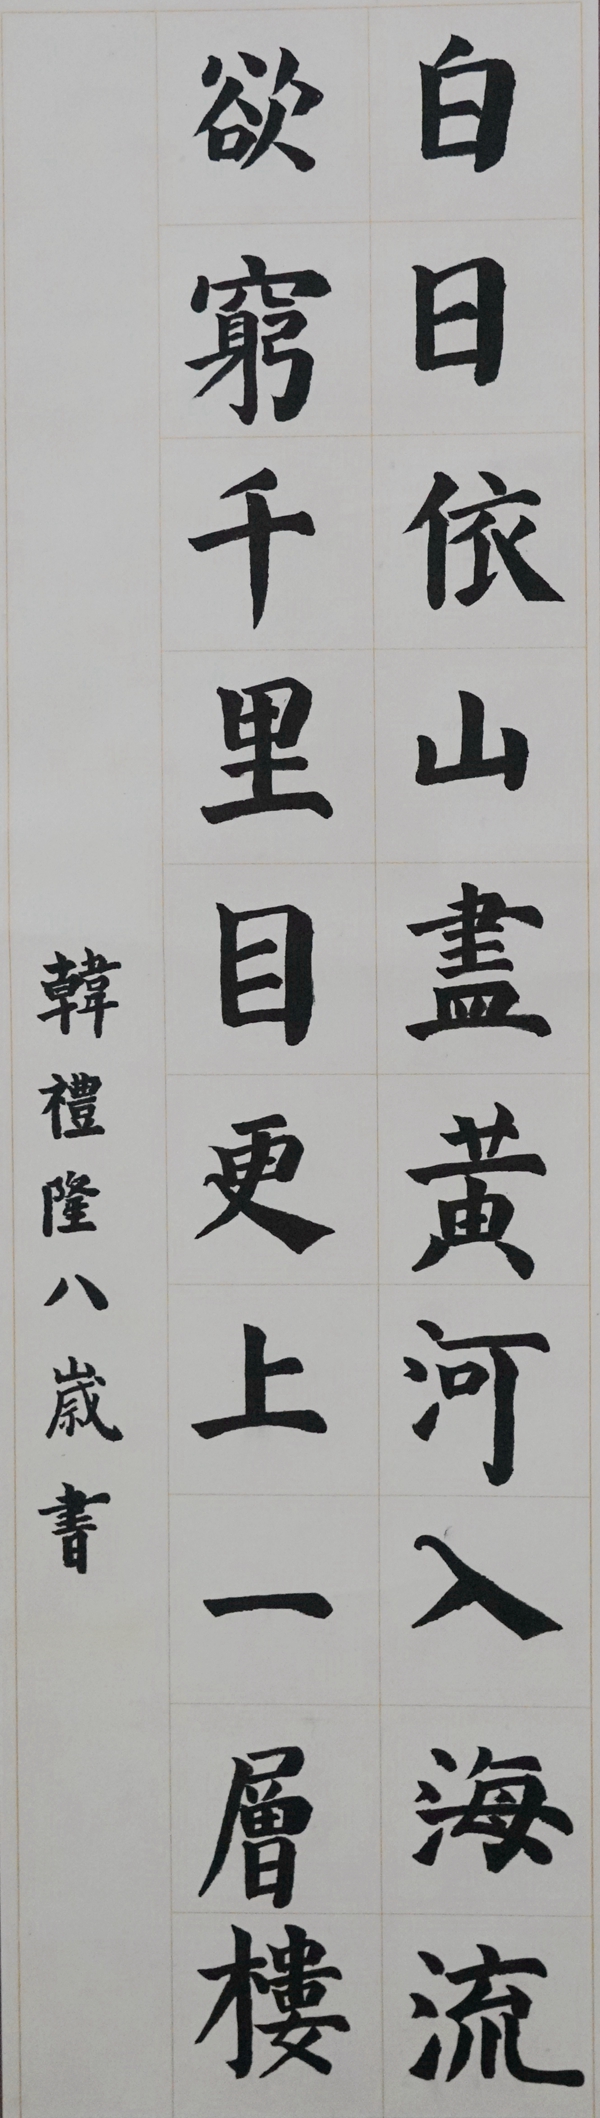 白日依山盡黃河入海流
欲窮千里目更上一層樓
韓禮隆八歲書